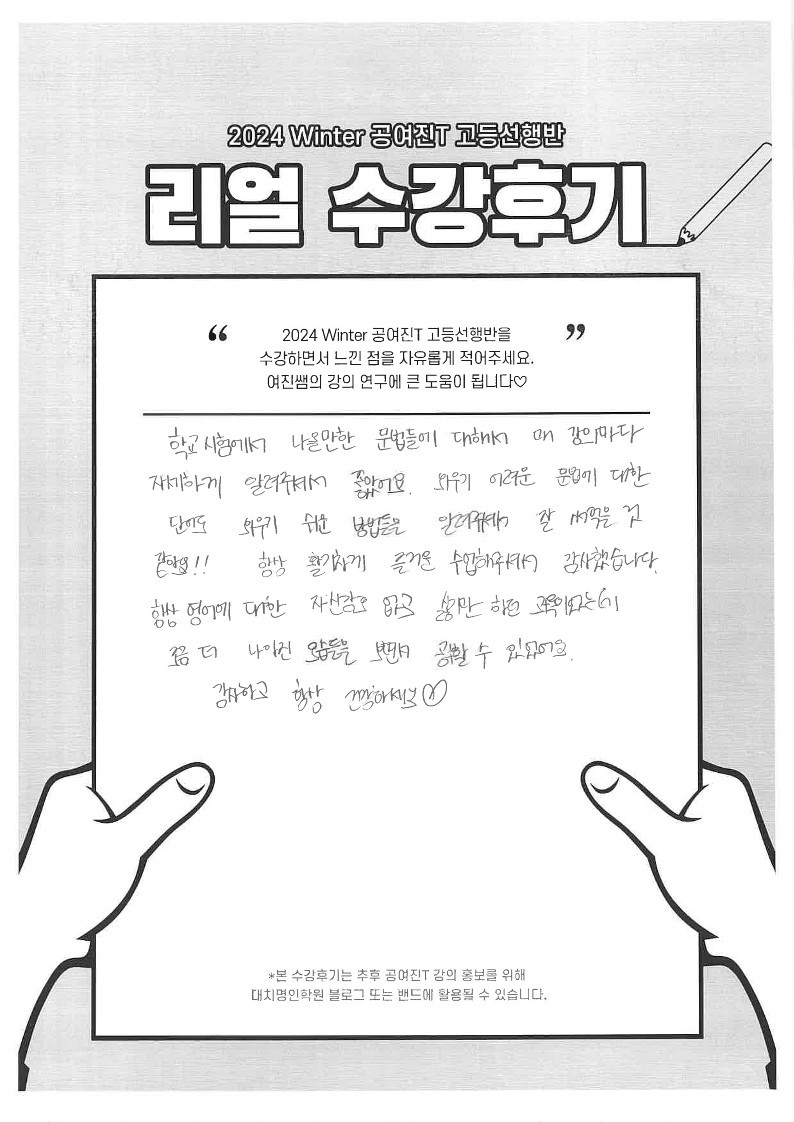 2024 Winter 공여진T 고등선행반
리얼 수강후기
“ 2024 Winter 공여진T 고등선행반을 ”
수강하면서 느낀 점을 자유롭게 적어주세요.
여진쌤의 강의 연구에 큰 도움이 됩니다♡
학교시험에서 나올만한 문법들에 대해서 매 강의마다
자세하게 알려주셔서 좋았어요. 외우기 어려운 문법에 대한
단어도 외우기 쉬운 방법들을 알려주셔서 잘 써먹을 것
같아요!! 항상 활기차게 즐거운 수업해주셔서 감사했습니다.
항상 영어에 대한 자신감도 없고 하던
좀 더 나아진 모습들을 보면서 공부할 수 있었어요.
감사하고 항상 건강하세요♡
*본 수강후기는 추후 공여진T 강의 홍보를 위해
대치명인학원 블로그 또는 밴드에 활용될 수 있습니다.